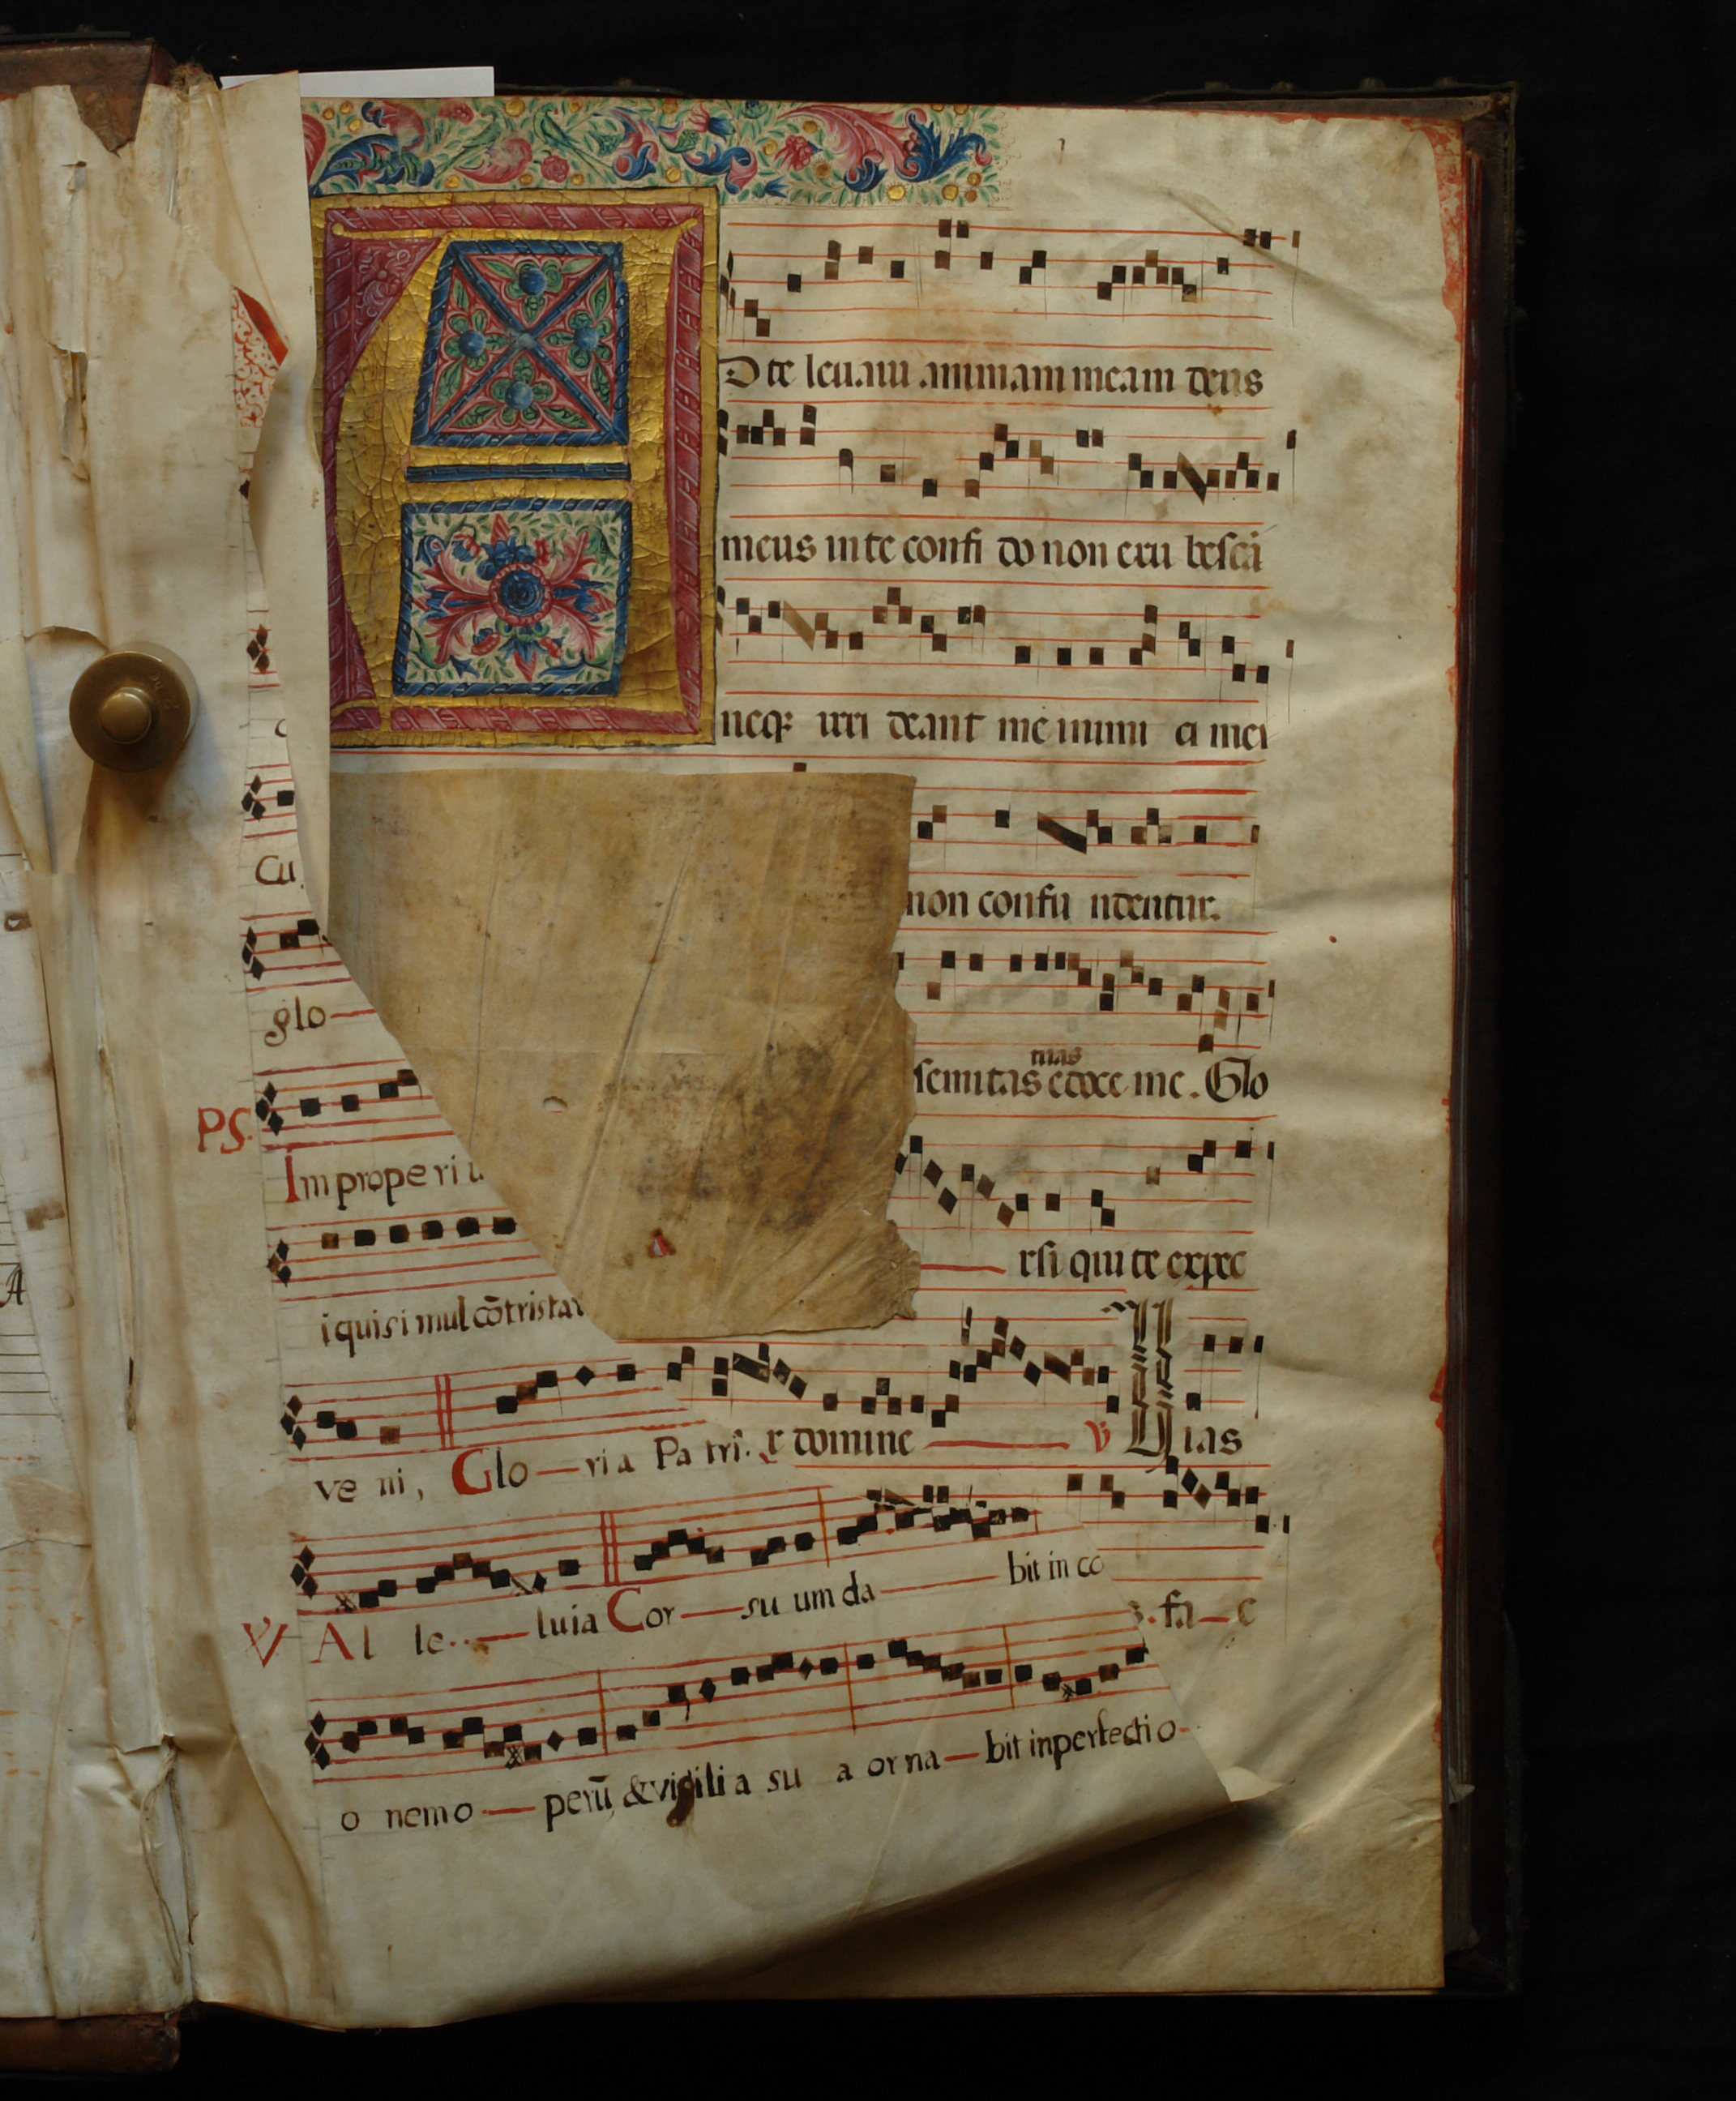 Ad te levavi animam meam deus
meus in te confi do non eru besca
neqꝫ irri deant me inimi ci mei
non confu ndentur.
semitas tuas edoce me. Glo
rsi qui te expec
r domine ℣ Vias
s. fa c
Cu
glo
PS.
Improperiu
i qui simul cōtristar
ve ni, Glo ria Pa tri.
℣ Al le luia Cor su um da bit in co
o nem o perū, & vigili a su a or na bit in perfecti o
A